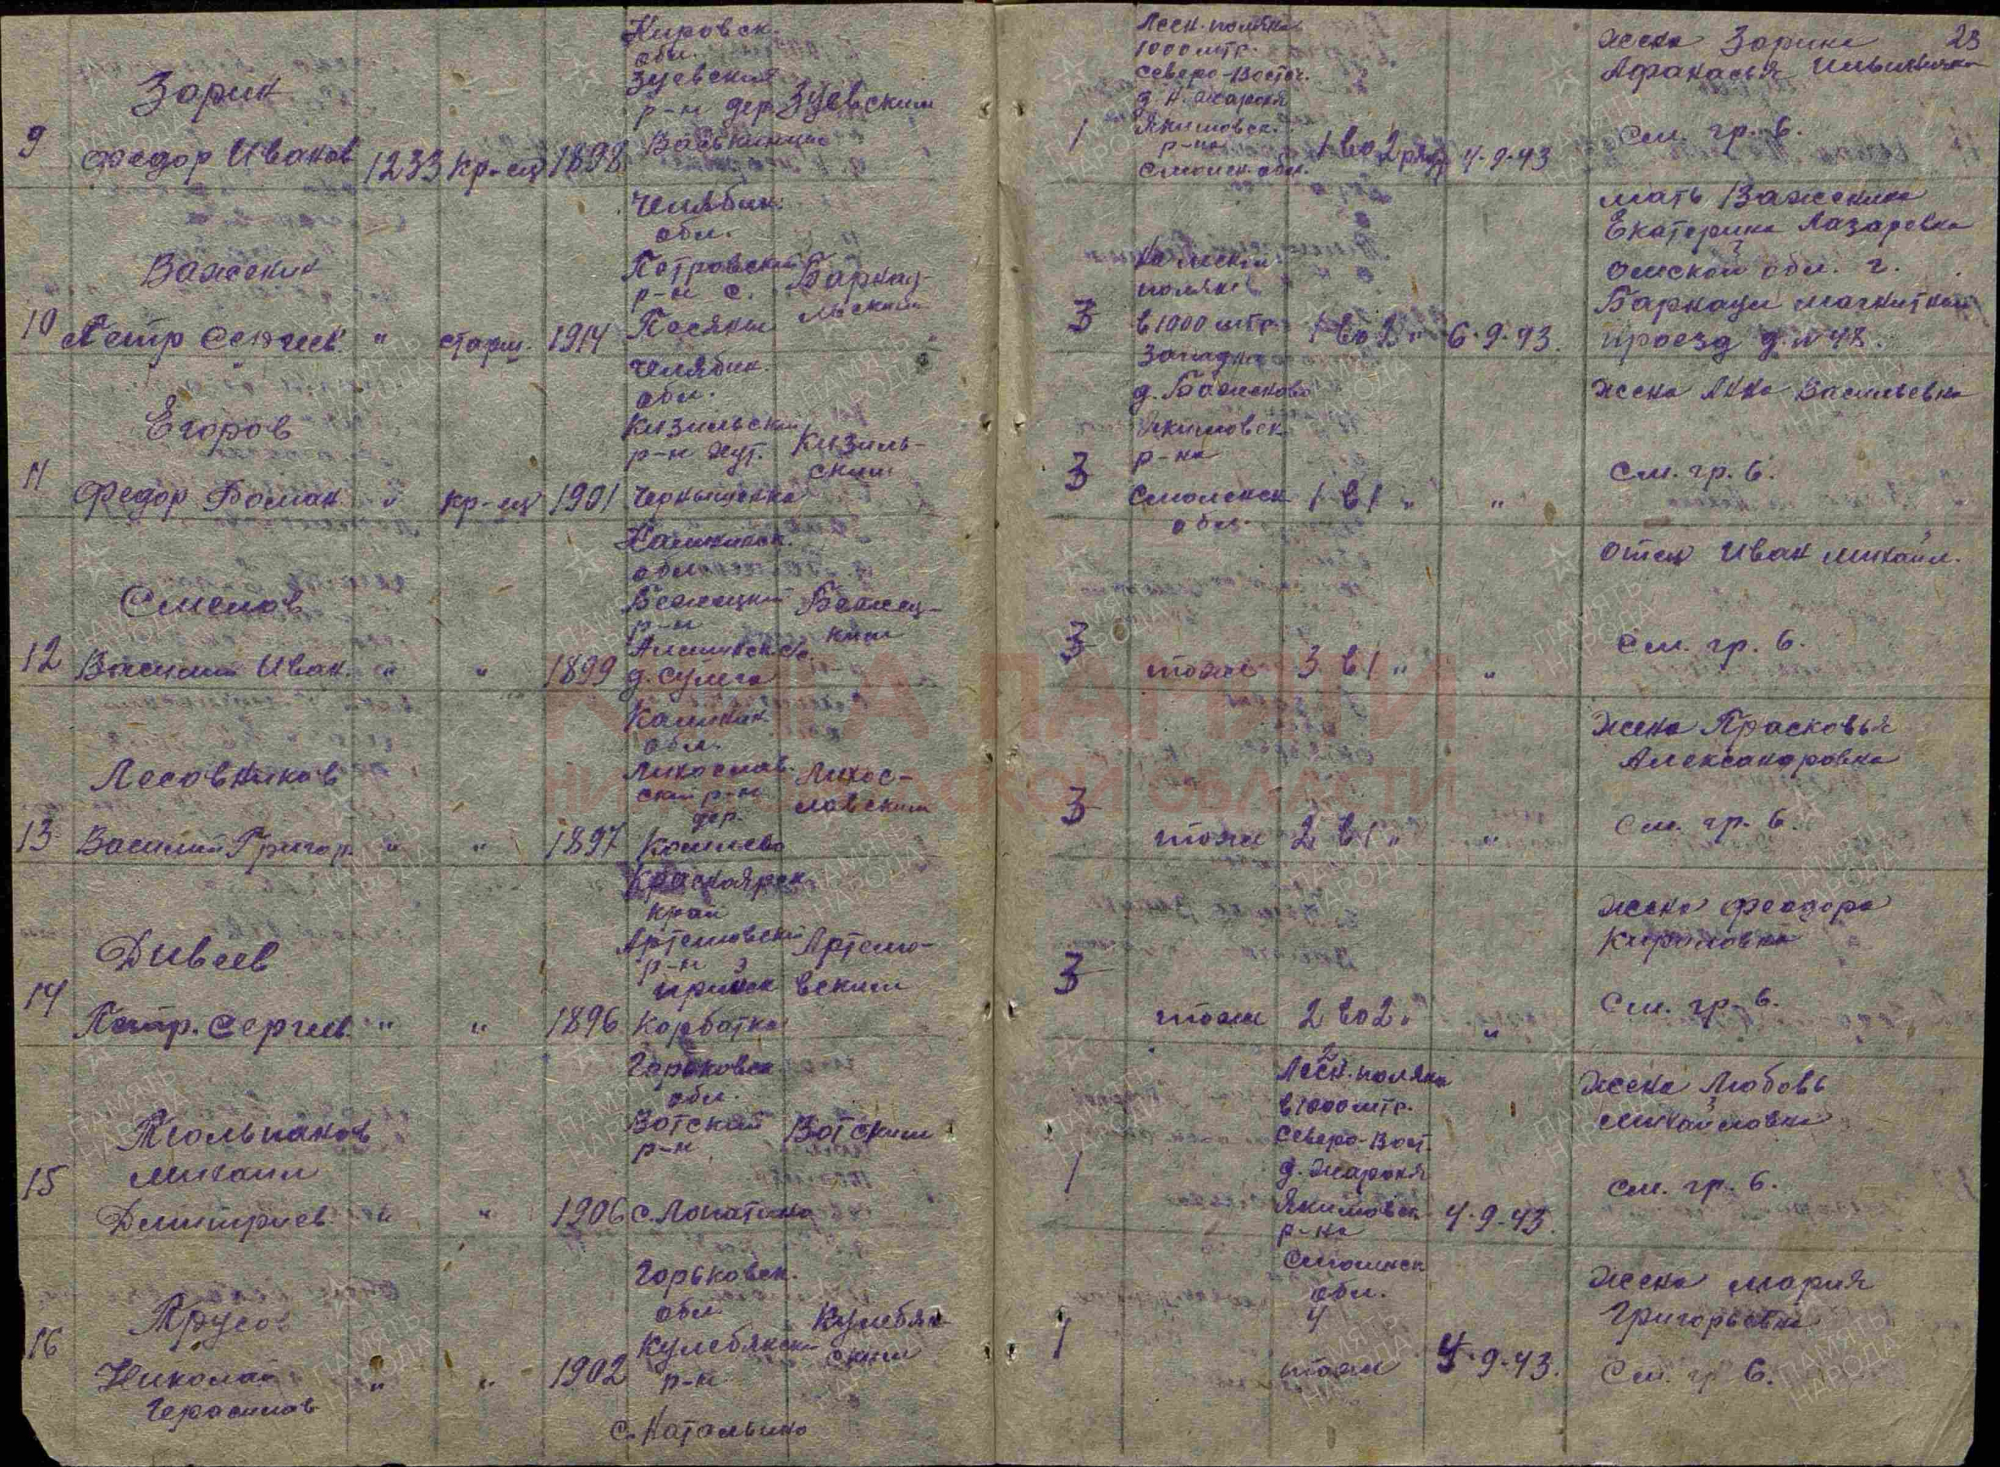 23
9
Зорин
Федор Иванов
1233
кр-ец
1898
Кировск.
обл.
Зуевский
р-н дер.
Васькинцы
Зуевским
1
Лесн. поляна
1000 мтр.
Северо-Восточ.
д. Н. Жарыня
Якимовск.
р-на
Смоленск. обл.
1 во 2 ряду
4.9.43
жена Зорина
Афанасья
См. гр. 6.
10
Важенин
Петр Сергеев.
"
старш.
1914
Челябин.
обл.
Петровский
р-н с.
Барнау-
льским
3
На лесной
поляне
в 1000 мтр.
Западнее
д.
1 во 2 "
6.9.43.
мать Важенина
Екатерина Лазаревна
Омской обл. г.
Барнаул магнитный
проезд д. № 48.
11
Егоров
Федор Роман.
"
кр-ец
1901
Челябин.
обл.
Кизильский
р-н хут.
Кизиль-
ским
3
Якимовск
р-на
Смоленск
обл.
1 в 1 "
"
жена Анна Васильевна
См. гр. 6.
12
Смелов
Василий Иван.
"
"
1899
Калининск.
обл.
Бежецкий
р-н
д. Сулега
Бежец-
ким
3
тоже
3 в 1 "
"
Отец Иван Михайл.
См. гр. 6.
13
Лесовников
Василий Григор.
"
"
1897
Калинин.
обл.
Лихослав-
ский р-н
дер.
Лихос-
лавским
3
тоже
2 в 1 "
"
жена Прасковья
Александровна
См. гр. 6.
14
Дивеев
Петр. Сергеев.
"
"
1896
Красноярск.
край
Артемовский
р-н
прииск
Артемо-
вским
3
тоже
2 во 2 "
"
жена Феодора
См. гр. 6.
15
Тюльпаков
Михаил
Дмитриев.
"
"
1906
Горьковск
обл.
Вотский
р-н
с. Лопатино
Вотским
1
Лесн. поляна
в 1000 мтр.
Северо-Вост.
д. Жарыня
Якимовск
р-на
Смоленск
обл.
4.9.43.
жена Любовь
Михайловна
См. гр. 6.
16
Трусов
Николай
Герасимов
"
"
1902
Горьковск.
обл
Кулебякский
р-н
с. Натальино
Кулебяк
ским
1
4
тоже
4.9.43.
жена Мария
Григорьевна
См. гр 6.
КНИГА ПАМЯТИ
НИЖЕГОРОДСКОЙ ОБЛАСТИ
ПАМЯТЬ
НАРОДА